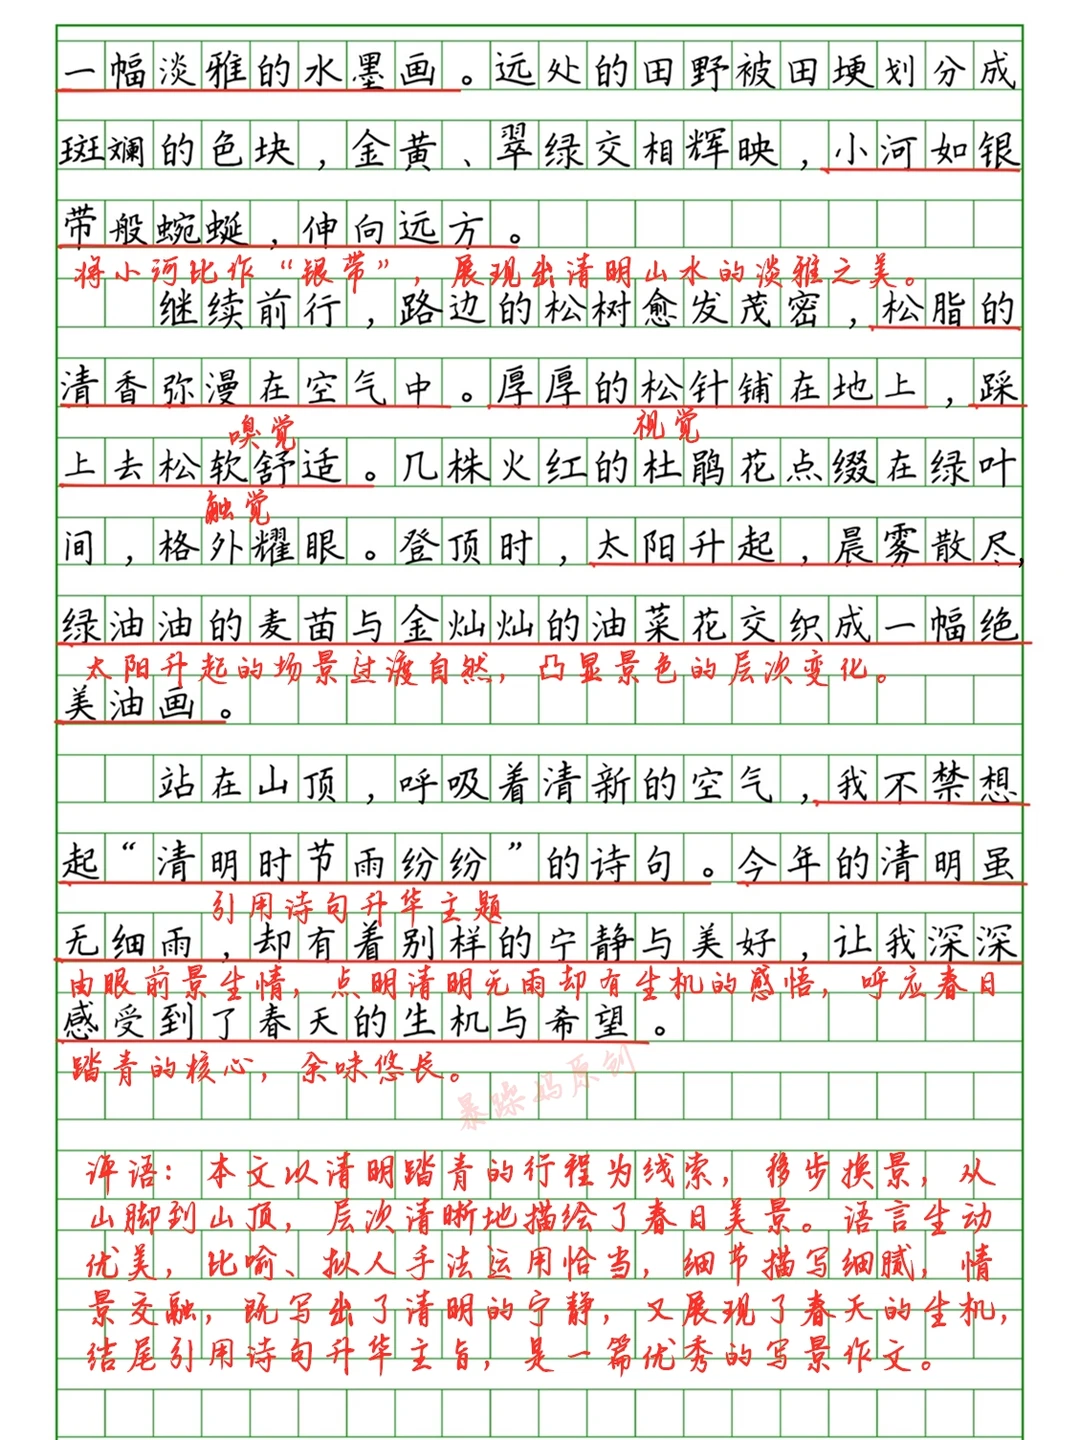 一幅淡雅的水墨画。远处的田野被田埂划分成
斑斓的色块，金黄、翠绿交相辉映，小河如银
带般蜿蜒，伸向远方。
将小河比作“银带”，展现出清明山水的淡雅之美。
继续前行，路边的松树愈发茂密，松脂的
清香弥漫在空气中。厚厚的松针铺在地上，踩
嗅觉 视觉
上去松软舒适。几株火红的杜鹃花点缀在绿叶
触觉
间，格外耀眼。登顶时，太阳升起，晨雾散尽，
绿油油的麦苗与金灿灿的油菜花交织成一幅绝
太阳升起的场景过渡自然，凸显景色的层次变化。
美油画。
站在山顶，呼吸着清新的空气，我不禁想
起“清明时节雨纷纷”的诗句。今年的清明虽
引用诗句升华主题
无细雨，却有着别样的宁静与美好，让我深深
由眼前景生情，点明清明无雨却有生机的感悟，呼应春日
感受到了春天的生机与希望。
踏青的核心，余味悠长。
暴躁妈原创
评语：本文以清明踏青的行程为线索，移步换景，从
山脚到山顶，层次清晰地描绘了春日美景。语言生动
优美，比喻、拟人手法运用恰当，细节描写细腻，情
景交融，既写出了清明的宁静，又展现了春天的生机，
结尾引用诗句升华主旨，是一篇优秀的写景作文。